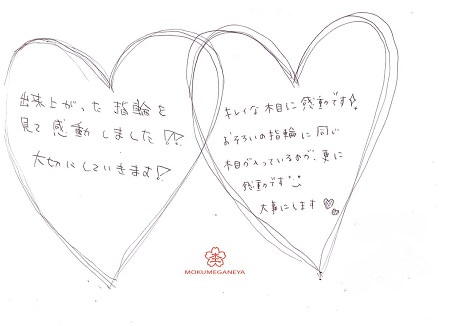 出来上がった 指輪を
見て 感動しました!!
大切にしていきます!
キレイな木目に感動です!
おそろいの指輪に同じ
木目が入っているのが、更に
感動です
大事にします
MOKUMEGANEYA